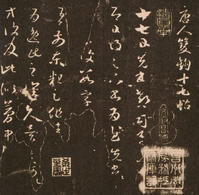 唐人雙鉤十七帖
十七日先書郗司馬未去
即日得足下書為慰先書以
具示復數字
吾前東粗足作佳觀
吾為逸民之懷久矣足下何
以方復及此似夢中